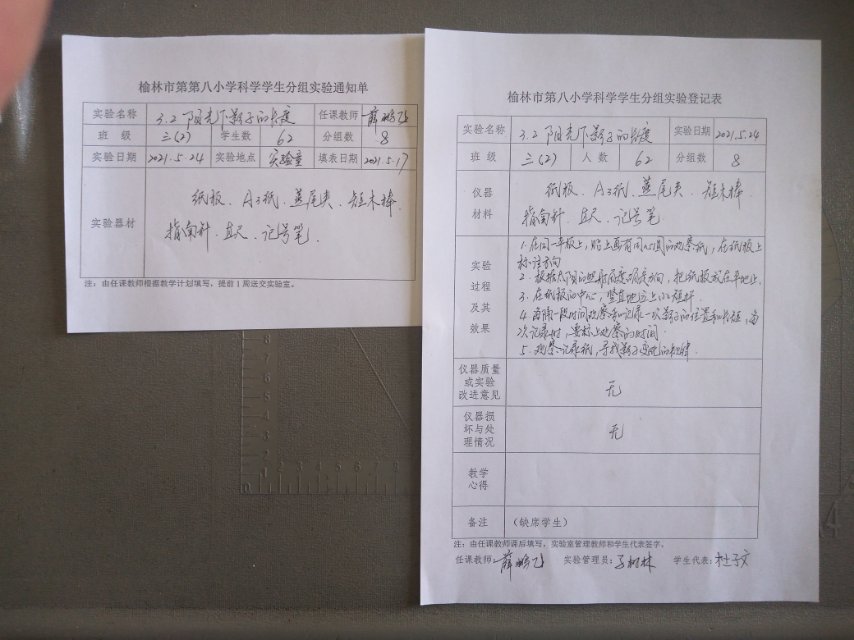 榆林市第第八小学科学学生分组实验通知单
实验名称 3.2 阳光下影子的长度 任课教师 薛鹏飞
班 级 三(2) 学生数 62 分组数 8
实验日期 2021.5.24 实验地点 实验室 填表日期 2021.5.17
实验器材 纸板、A3纸、燕尾夹、短木棒、
指南针、直尺、记号笔.
注：由任课教师根据教学计划填写，提前1周送交实验室。
榆林市第八小学科学学生分组实验登记表
实验名称 3.2 阳光下影子的长度 实验日期 2021.5.24
班 级 三(2) 人 数 62 分组数 8
仪器材料 纸板、A3纸、燕尾夹、短木棒
指南针、直尺、记号笔
实验过程及其效果
1. 在同一纸板上，贴上画有同心圆的观察纸，在纸板上
标注方向
2. 根据太阳的照射角度确定方向，把纸板放在平地上.
3. 在纸板的中心，竖直地立上小短杆.
4. 每隔一段时间观察和记录一次影子的位置和长短，每
次记录时，要标上观察的时间.
5. 观察记录纸，寻找影子变化的规律.
仪器质量或实验改进意见 无
仪器损坏与处理情况 无
教学心得
备注 （缺席学生）
注：由任课教师课后填写，实验室管理教师和学生代表签字。
任课教师：薛鹏飞 实验管理员： 树林 学生代表：杜子文